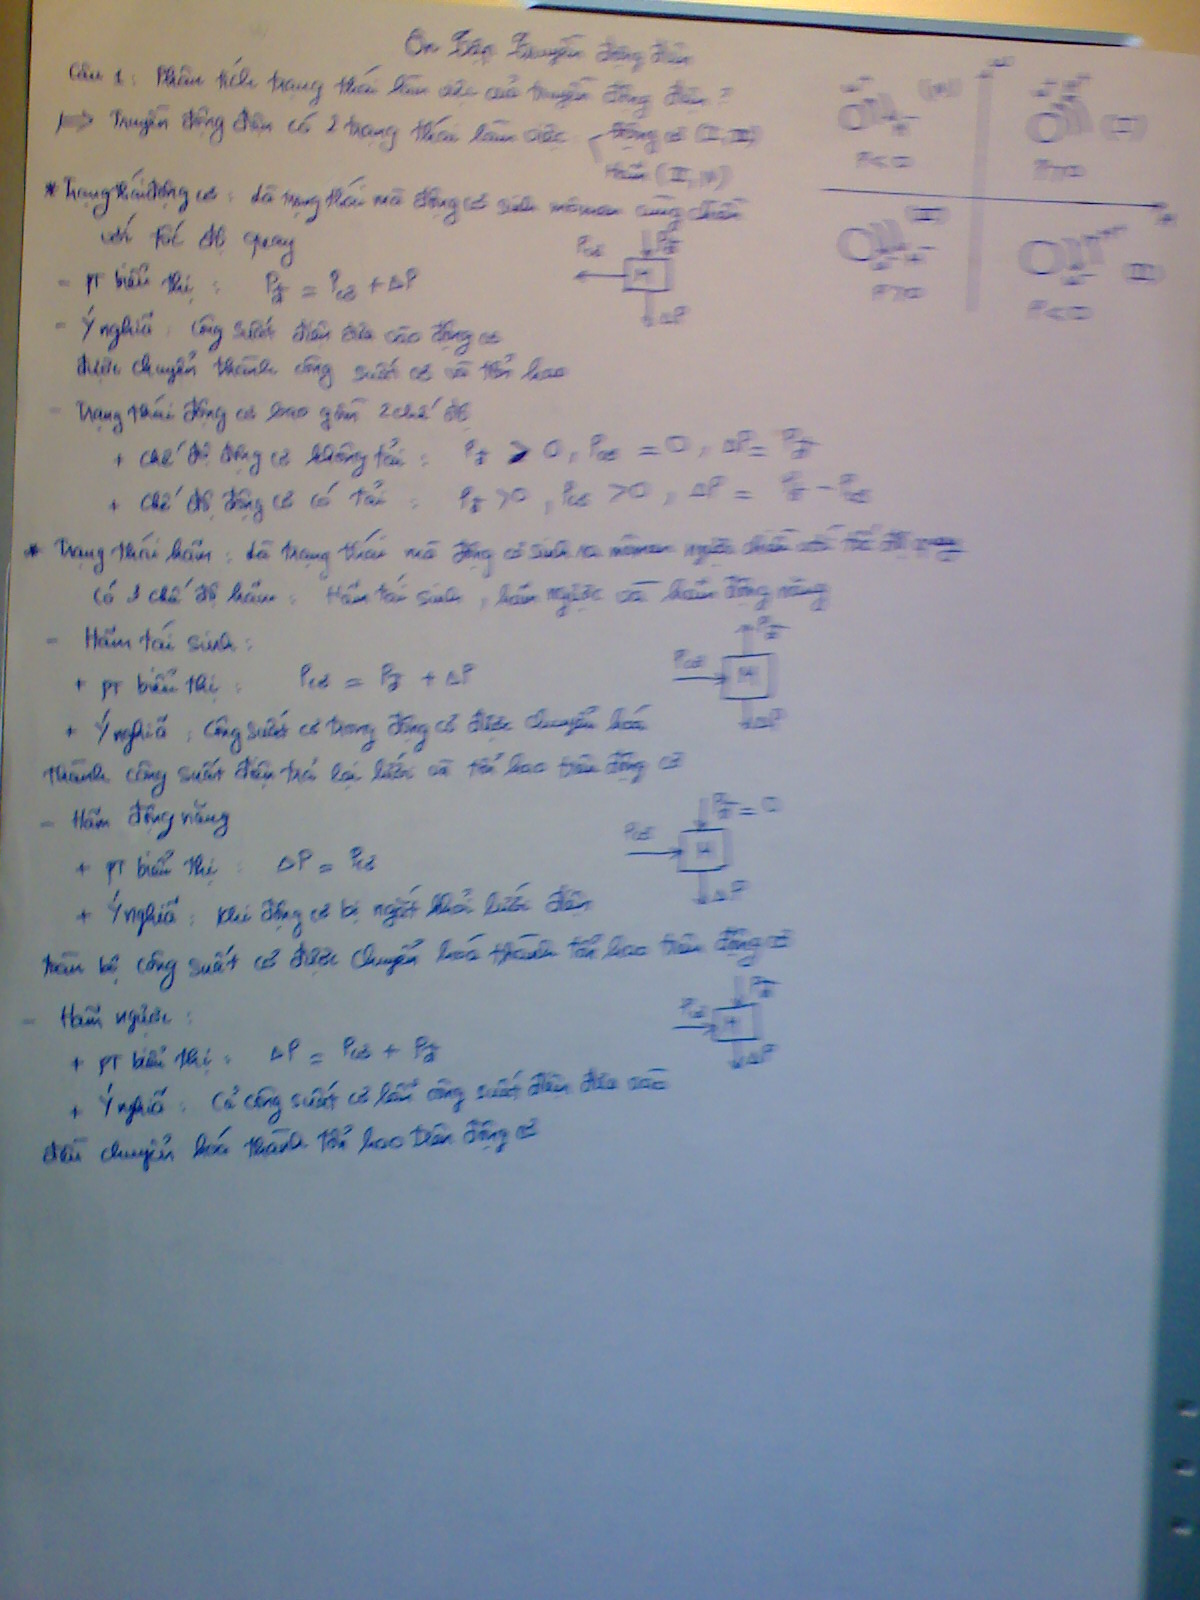 Ôn Tập Truyền động điện
Câu 1: Phân tích trạng thái làm việc của truyền động điện ?
=> Truyền động điện có 2 trạng thái làm việc
Động cơ (I, III)
Hãm (II, IV)
* Trạng thái động cơ : Là trạng thái mà động cơ sinh mômen cùng chiều
với tốc độ quay
- pt biểu thị : Pđ = Pcơ + ΔP
- Ý nghĩa : Công suất điện đưa vào động cơ
được chuyển thành công suất cơ và tổn hao
- Trạng thái động cơ bao gồm 2 chế độ
+ chế độ động cơ không tải : Pđ > 0, Pcơ = 0, ΔP = Pđ
+ chế độ động cơ có tải : Pđ > 0, Pcơ > 0, ΔP = Pđ - Pcơ
* Trạng thái hãm : Là trạng thái mà động cơ sinh ra mômen ngược chiều với tốc độ quay
Có 3 chế độ hãm : Hãm tái sinh, hãm ngược và hãm động năng
- Hãm tái sinh :
+ pt biểu thị : Pcơ = Pđ + ΔP
+ Ý nghĩa : Công suất cơ trong động cơ được chuyển hoá
thành công suất điện trả lại lưới và tổn hao trên động cơ
- Hãm động năng
+ pt biểu thị : ΔP = Pcơ
+ Ý nghĩa : Khi động cơ bị ngắt khỏi lưới điện
toàn bộ công suất cơ được chuyển hoá thành tổn hao trên động cơ
- Hãm ngược :
+ pt biểu thị : ΔP = Pcơ + Pđ
+ Ý nghĩa : Cả công suất cơ lẫn công suất điện đưa vào
đều chuyển hoá thành tổn hao trên động cơ